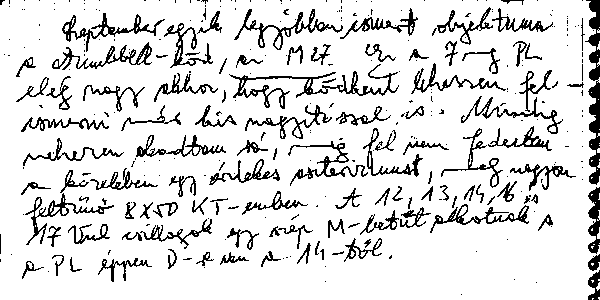 Szeptember egyik legjobban ismert objektuma
a Dumbbell-köd, az M27. Ez a 7-g PL
elég nagy ahhoz, hogy ködként lehessen fel-
ismerni már kis nagyítással is. Mindig
nehezen akadtam rá, míg fel nem fedeztem
a közelében egy érdekes aszterizmust, mely nagyon
feltűnő 8x50 KT-emben. A 12, 13, 14, 16 és
17 Vul csillagok egy szép M-betűt alkotnak s
a PL éppen D-re van a 14-től.